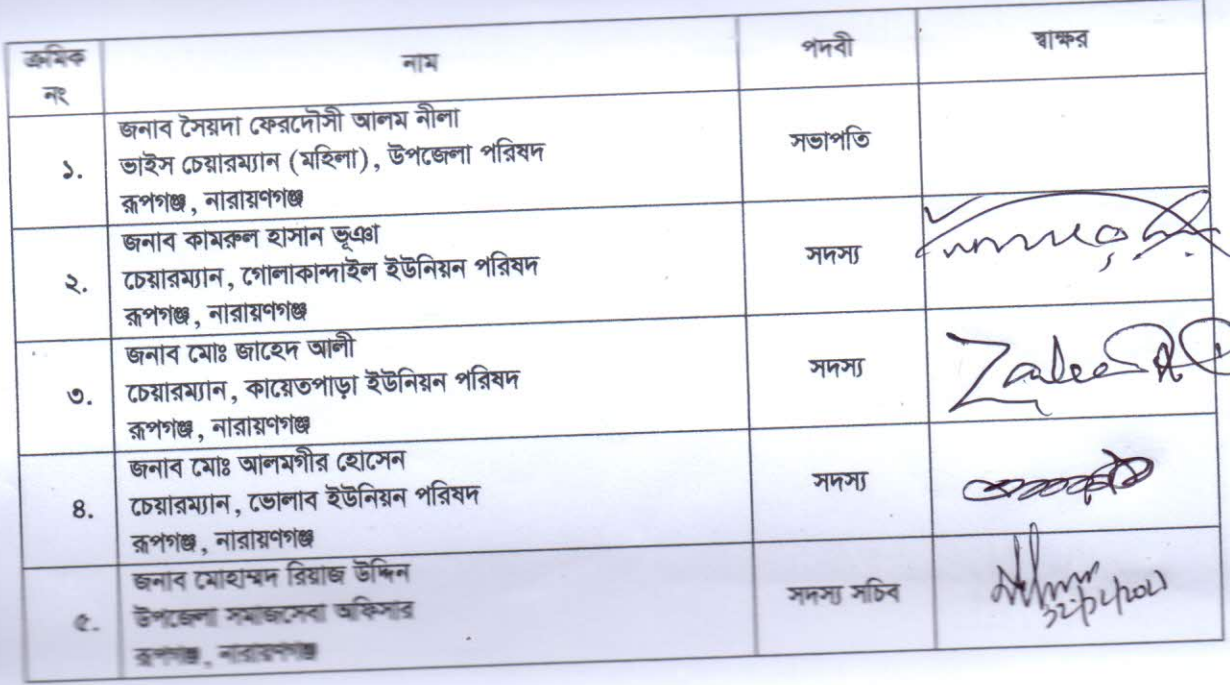 ক্রমিক নং
নাম
পদবী
স্বাক্ষর
১.
জনাব সৈয়দা ফেরদৌসী আলম নীলা
ভাইস চেয়ারম্যান (মহিলা), উপজেলা পরিষদ
রূপগঞ্জ, নারায়ণগঞ্জ
সভাপতি
২.
জনাব কামরুল হাসান ভূঞা
চেয়ারম্যান, গোলাকান্দাইল ইউনিয়ন পরিষদ
রূপগঞ্জ, নারায়ণগঞ্জ
সদস্য
৩.
জনাব মোঃ জাহেদ আলী
চেয়ারম্যান, কায়েতপাড়া ইউনিয়ন পরিষদ
রূপগঞ্জ, নারায়ণগঞ্জ
সদস্য
৪.
জনাব মোঃ আলমগীর হোসেন
চেয়ারম্যান, ভোলাব ইউনিয়ন পরিষদ
রূপগঞ্জ, নারায়ণগঞ্জ
সদস্য
৫.
জনাব মোহাম্মদ রিয়াজ উদ্দিন
উপজেলা সমাজসেবা অফিসার
রূপগঞ্জ, নারায়ণগঞ্জ
সদস্য সচিব